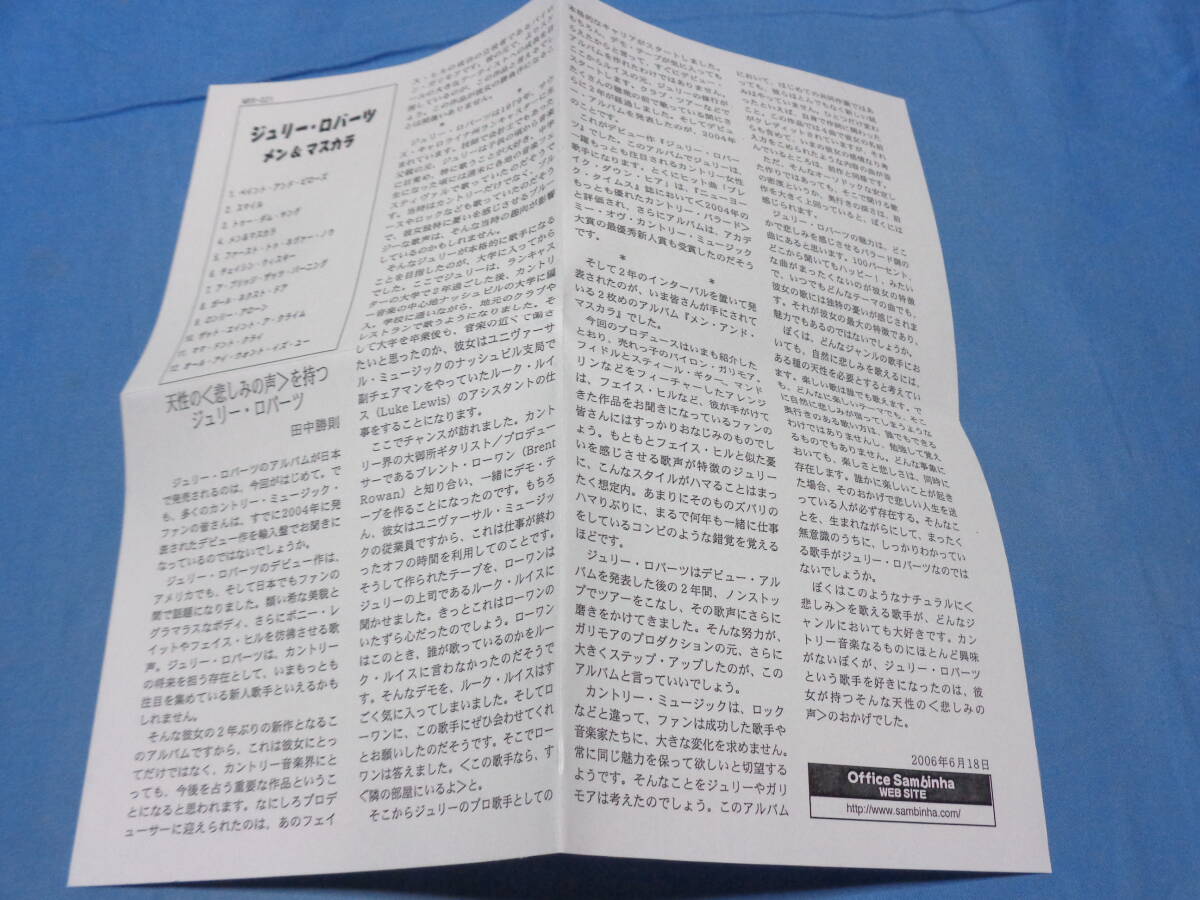 ジュリー・ロバーツ
メン&マスカラ
1. ペイント・アンド・ピローズ
2. スマイル
3. トゥー・ダム・ヤング
4. メン&マスカラ
5. ファースト・トゥ・ネヴァー・ノウ
6. チェイシン・ウィスキー
7. ア・ブリッジ・ザッツ・バーニング
8. ガール・ネクスト・ドア
9. ロンリー・アローン
10. ザット・エイント・ア・クライム
11. ママ・ドント・クライ
12. オール・アイ・ウォント・イズ・ユー
天性の<悲しみの声>を持つ
ジュリー・ロバーツ
田中勝則
ジュリー・ロバーツのアルバムが日本
で発売されるのは、今回がはじめて。で
も、多くのカントリー・ミュージック・
ファンの皆さんは、すでに2004年に発
表されたデビュー作を輸入盤でお聞きに
なっているのではないでしょうか。
ジュリー・ロバーツのデビュー作は、
アメリカでも、そして日本でもファンの
間で話題になりました。類い希な美貌と
グラマラスなボディ、さらにボニー・レ
イットやフェイス・ヒルを彷彿させる歌
声。ジュリー・ロバーツは、カントリー
の将来を担う存在として、いまもっとも
注目を集めている新人歌手といえるかも
しれません。
そんな彼女の2年ぶりの新作となるこ
のアルバムですから、これは彼女にとっ
てだけではなく、カントリー音楽界にと
っても、今後を占う重要な作品というこ
とになると思われます。なにしろプロデ
ューサーに迎えられたのは、あのフェイ
ス・ヒルの
は間違いありません。
ジュリー・ロバーツは1979年、サウ
ス・キャロライナ州ランキャスターに生
まれています。
父親の元、ジュリーは子供の頃から音楽
に目覚め、特に歌うことが大好き。中学
生になった頃には週末に各地の音楽フェ
スティヴァルで歌っていたのだそうで
す。当時はカントリーだけでなく、ブル
ースやロックなども歌っていたのだそう
で、彼女独特に憂いを感じさせるブルー
ジーな歌声は、そんな当時の趣向が影響
しているのかもしれません。
そんなジュリーが本格的に歌手になる
ことを目指したのが、大学に入ってから
でした。ここでジュリーは、ランキャス
ターの大学で2年過ごした後、カントリ
ー音楽の中心地ナッシュビルの大学に編
入。学校に通いながら、地元のクラブや
レストランで歌うようになりました。そ
して大学を卒業後も、音楽の近くで働き
たいと思ったのか、彼女はユニヴァーサ
ル・ミュージックのナッシュビル支局で
副チェアマンをやっていたルーク・ルイ
ス(Luke Lewis)のアシスタントの仕
事をすることになります。
ここでチャンスが訪れました。カント
リー界の大御所ギタリスト/プロデュー
サーであるブレント・ローワン(Brent
Rowan)と知り合い、一緒にデモ・テ
ープを作ることになったのです。もちろ
ん、彼女はユニヴァーサル・ミュージッ
クの従業員ですから、これは仕事が終わ
ったオフの時間を利用してのことです。
そうして作られたテープを、ローワンは
ジュリーの上司であるルーク・ルイスに
聞かせました。きっとこれはローワンの
いたずら心だったのでしょう。ローワン
はこのとき、誰が歌っているのかをルー
ク・ルイスに言わなかったのだそうで
す。そんなデモを、ルーク・ルイスはす
ごく気に入ってしまいました。そしてロ
ーワンに、この歌手にぜひ会わせてくれ
とお願いしたのだそうです。そこでロー
ワンは答えました。<この歌手なら、す
ぐ隣の部屋にいるよ>と。
そこからジュリーのプロ歌手としての
本格的なキャリアがスタートしました。
もちろん、デモ・テープが気に入っても
らえたからと言って、すぐにデビュー・
アルバムを作れたわけではありません。
ここからルイスの元、ジュリーの修行が
スタートします。クラブ・ツアーなどで
たくさんの聴衆の前で歌っている間に、
さらに2年が経過しました。そしてデビュ
ー・アルバムを発表したのが、2004年
のことです。
これがデビュー作『ジュリー・ロバー
ツ』でした。このアルバムでジュリーは、
一躍もっとも注目されるカントリー女性
歌手になります。とくにヒット曲「ブレ
イク・ダウン・ヒア」は、『ニューヨー
ク・タイムス』誌において<2004年の
もっとも優れたカントリー・バラード>
と評価され、さらにアルバムは、アカデ
ミー・オヴ・カントリー・ミュージック
大賞の最優秀新人賞も受賞したのだそう
です。
* * *
そして2年のインターバルを置いて発
表されたのが、いま皆さんが手にされて
いる2枚めのアルバム『メン・アンド・
マスカラ』でした。
今回のプロデュースはいまも紹介した
とおり、売れっ子のバイロン・ガリモア。
フィドルとスティール・ギター、マンド
リンなどをフィーチャーしたアレンジ
は、フェイス・ヒルなど、彼が手がけて
きた作品をお聞きになっているファンの
皆さんにはすっかりおなじみのものでし
ょう。もともとフェイス・ヒルと似た憂
いを感じさせる歌声が特徴のジュリー
に、こんなスタイルがハマることはまっ
たく想定内。あまりにそのものズバリの
ハマりぶりに、まるで何年も一緒に仕事
をしているコンビのような錯覚を覚える
ほどです。
ジュリー・ロバーツはデビュー・アル
バムを発表した後の2年間、ノンストッ
プでツアーをこなし、その歌声にさらに
磨きをかけてきました。そんな努力が、
ガリモアのプロダクションの元、さらに
大きくステップ・アップしたのが、この
アルバムと言っていいでしょう。
カントリー・ミュージックは、ロック
などと違って、ファンは成功した歌手や
音楽家たちに、大きな変化を求めません。
常に同じ魅力を保って欲しいと切望する
ようです。そんなことをジュリーやガリ
モアは考えたのでしょう。このアルバム
において、はじめての共同作業ではあ
っても、彼らはとんでもなく新しい試
みはやっていません。ひとつだけ変わ
ったといえば、自身で作曲に関わった
こと。この作品では4曲で彼女の名前
がクレジットされていますが、それ
らも含めて、いまの彼女の感情なりを
んでいるところは、前作と同様です。
ただ、そんなオーソドックスな安定し
た作りではあっても、そこで聞ける歌
の密度というか、奥行きの深さは、前
作を大きく上回っていると、ぼくには
感じられます。
ジュリー・ロバーツの魅力は、どこ
かで悲しみを感じさせるバラード調の
曲にあると思います。100パーセント、
どこから聞いてもハッピー!、みたい
な曲がまったくないのが彼女の特徴
で、いつでもどんなテーマの曲でも、
彼女の歌には独特の憂いが感じされま
す。それが彼女の最大の特徴であり、
魅力でもあるのではないでしょうか。
ぼくは、どんなジャンルの歌手にお
いても、自然に悲しみを歌えるには、
ある種の天性を必要とすると考えてい
ます。楽しい歌は誰でも歌えます。で
も、どんなに楽しいテーマでも、そこ
に自然に悲しみが宿ってしまうような
奥行きのある歌い方は、誰でもできる
わけではありませんし、勉強して覚え
るものでもありません。どんな事象に
おいても、楽しさと悲しさは、同時に
存在します。誰かに楽しいことが起き
た場合、そのおかげで悲しい人生を送
っている人が必ず存在する。そんなこ
とを、生まれながらにして、まったく
無意識のうちに、しっかりわかってい
る歌手がジュリー・ロバーツなのでは
ないでしょうか。
ぼくはこのようなナチュラルに<
悲しみ>を歌える歌手が、どんなジ
ャンルにおいても大好きです。カン
トリー音楽なるものにほとんど興味
がないぼくが、ジュリー・ロバーツ
という歌手を好きになったのは、彼
女が持つそんな天性の<悲しみの
声>のおかげでした。
2006年6月18日
Office Sambinha
WEB SITE
http://www.sambinha.com/